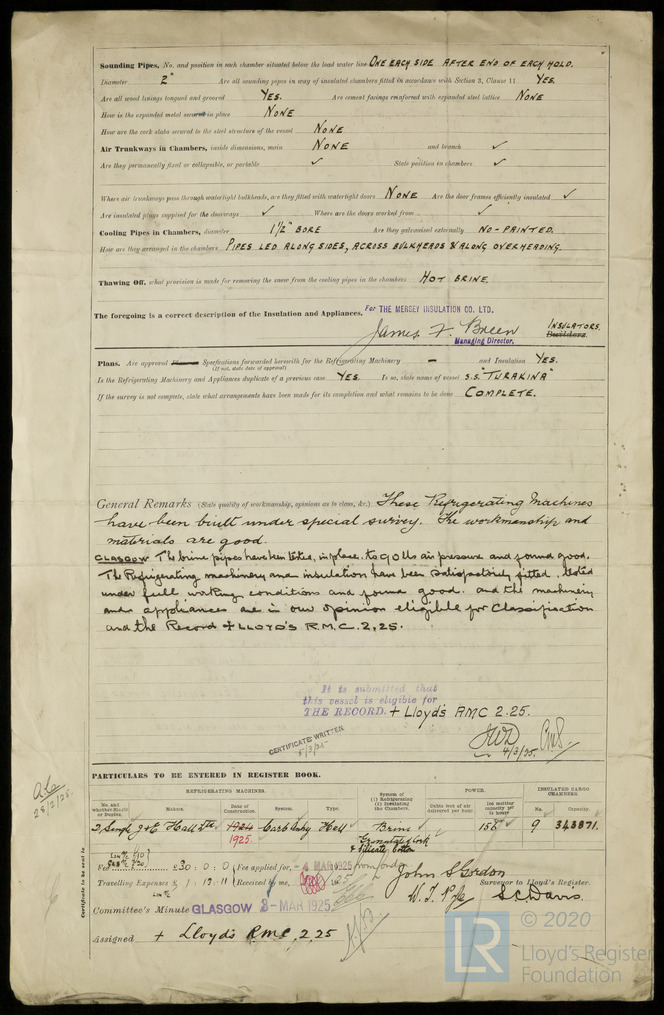 Sounding Pipes, No. and position in each chamber situated below the load water line ONE EACH SIDE AFTER END OF EACH HOLD.
Diameter 2" Are all sounding pipes in way of insulated chambers fitted in accordance with Section 3, Clause 11 YES.
Are all wood linings tongued and grooved YES. Are cement facings reinforced with expanded steel lattice NONE
How is the expanded metal secured in place NONE
How are the cork slabs secured to the steel structure of the vessel NONE
Air Trunkways in Chambers, inside dimensions, main NONE and branch ✓
Are they permanently fixed or collapsible, or portable ✓ State position in chambers ✓
Where air trunkways pass through watertight bulkheads, are they fitted with watertight doors NONE Are the door frames efficiently insulated ✓
Are insulated plugs supplied for the doorways ✓ Where are the doors worked from ✓
Cooling Pipes in Chambers, diameter 1½" BORE Are they galvanised externally NO-PAINTED.
How are they arranged in the chambers PIPES LED ALONG SIDES, ACROSS BULKHEADS & ALONG OVERHEADING.
Thawing Off, what provision is made for removing the snow from the cooling pipes in the chambers HOT BRINE.
The foregoing is a correct description of the Insulation and Appliances. For THE MERSEY INSULATION CO. LTD.
James F. Breen INSULATORS.
Managing Director. Builders.
Plans. Are approved Plans or Specifications forwarded herewith for the Refrigerating Machinery – and Insulation YES.
(If not, state date of approval)
Is the Refrigerating Machinery and Appliances duplicate of a previous case YES. If so, state name of vessel S.S. "TURAKINA"
If the survey is not complete, state what arrangements have been made for its completion and what remains to be done COMPLETE.
General Remarks (State quality of workmanship, opinions as to class, &c.) These Refrigerating Machines
have been built under special survey. The workmanship and
materials are good.
GLASGOW The brine pipes have been tested, in place, to 90 lbs air pressure and found good.
The Refrigerating machinery and insulation have been satisfactorily fitted, tested
under full working conditions and found good. and the machinery
and appliances are in our opinion eligible for Classification
and the Record + LLOYD'S R.M.C. 2,25.
It is submitted that
this vessel is eligible for
THE RECORD. + Lloyd's RMC 2.25.
CERTIFICATE WRITTEN
5/3/25
4/3/25.
28/2/25.
PARTICULARS TO BE ENTERED IN REGISTER BOOK.
REFRIGERATING MACHINES. POWER. INSULATED CARGO CHAMBERS.
No. and whether Single or Duplex. Makers. Date of Construction. System. Type. System of (1) Refrigerating (2) Insulating the Chambers. Cubic feet of air delivered per hour Ice melting capacity per 24 hours No. Capacity.
2, Single J & E Hall Ltd 1924 Carb Anhy Hall Brine 156 9 343871.
1925 Granulated cork
& Silicate Cotton
Fee £30 : 0 : 0 Fee applied for, - 4 MAR 1925 John S Gordon
Travelling Expenses £ 1 : 12 : 11 Received by me, Surveyor to Lloyd's Register.
S C Davis
Committee's Minute GLASGOW 3 - MAR 1925
Assigned + Lloyd's RMC 2,25
Certificate to be sent to
© 2020
LR
Lloyd's Register
Foundation